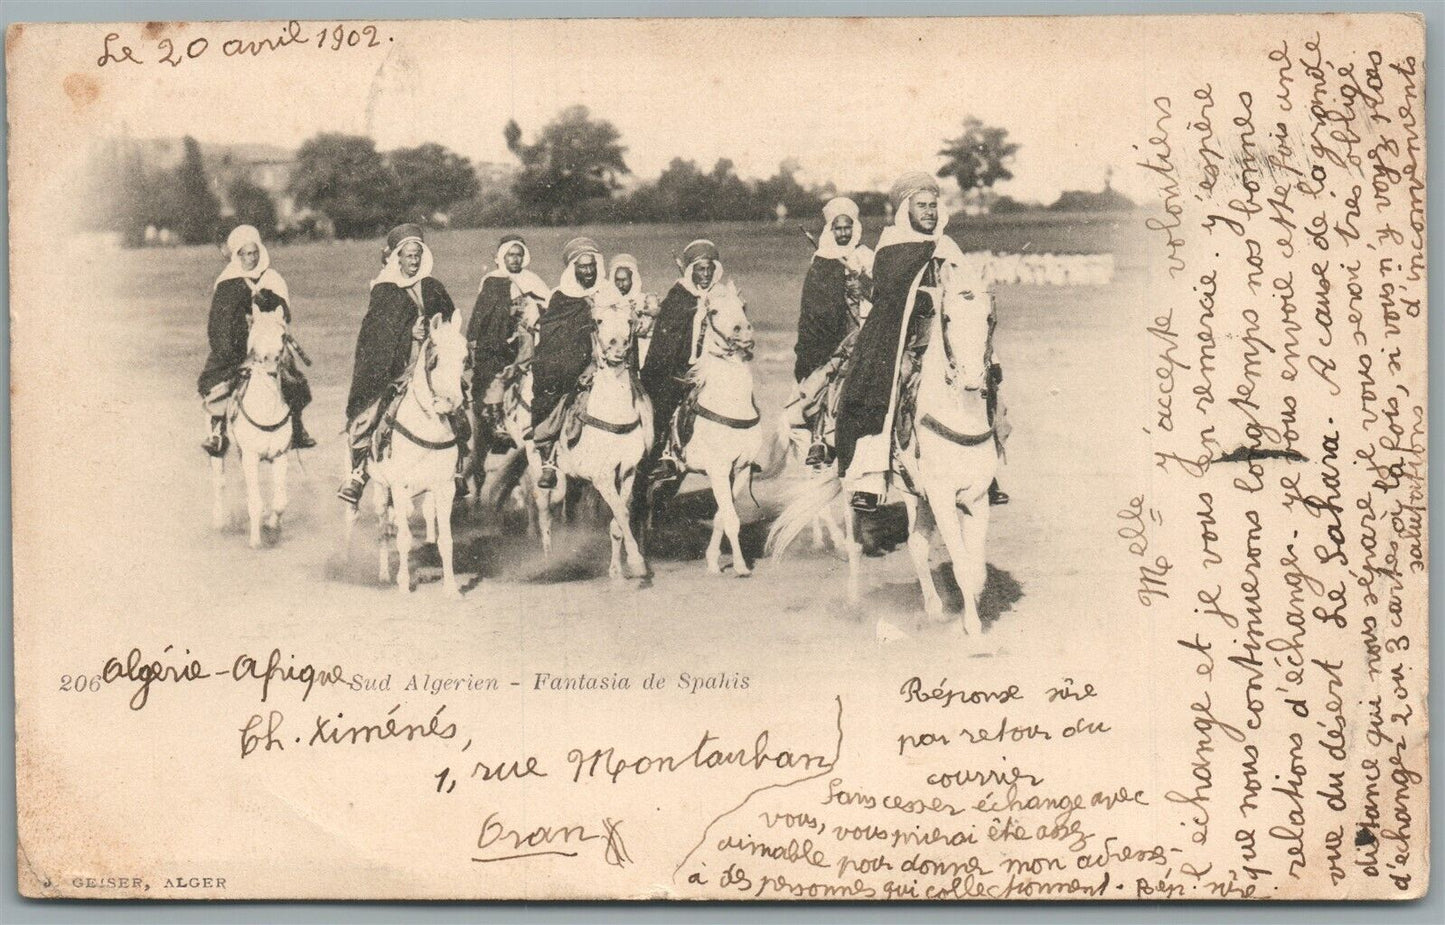 Le 20 avril 1902.
206 Algérie - Afrique Sud Algerien - Fantasia de Spahis
Ch. Ximénés,
1, rue Montauban
Oran
J. GEISER, ALGER
Réponse sûre
par retour du
courrier
Sans cesser échange avec
vous, vous prierai être assez
aimable pour donner mon adres-
à des personnes qui collectionnent. Rép. sûre
Melle
J'accepte volontiers
l'échange et je vous en remercie. J'espère
que nous continuerons longtemps nos bonnes
relations d'échanges. Je vous envoie cette fois une
vue du désert Le Sahara. A cause de la grande
distance qui nous sépare je vous serai très obligé
d'échanger 2 ou 3 cartes à la fois, si vous n'y
d'inconvénients
salutations